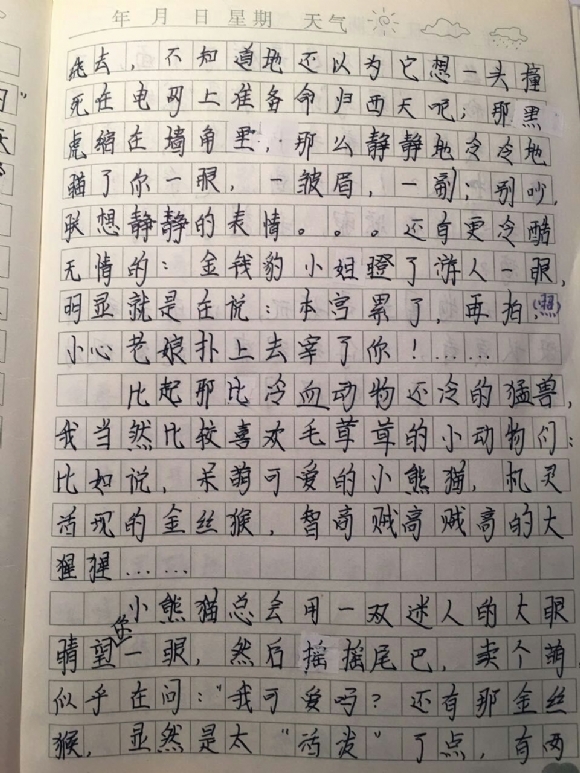 年 月 日 星期 天气
飞去，不知道地还以为它想一头撞
死在电网上准备命归西天呢；那黑
虎缩在墙角里，那么静静地冷冷地
瞄了你一眼，一皱眉，一副：别吵，
联想静静的表情。。。还有更冷酷
无情的：金钱豹小姐瞪了游人一眼，
明显就是在说：本宫累了，再拍(照)，
小心老娘扑上去宰了你！……
比起那比冷血动物还冷的猛兽，
我当然比较喜欢毛茸茸的小动物们：
比如说，呆萌可爱的小熊猫，机灵
活现的金丝猴，智商贼高贼高的大
猩猩……
小熊猫总会用一双迷人的大眼
睛望你一眼，然后摇摇尾巴，卖个萌，
似乎在问："我可爱吗？还有那金丝
猴，显然是太"活发"了点，有两